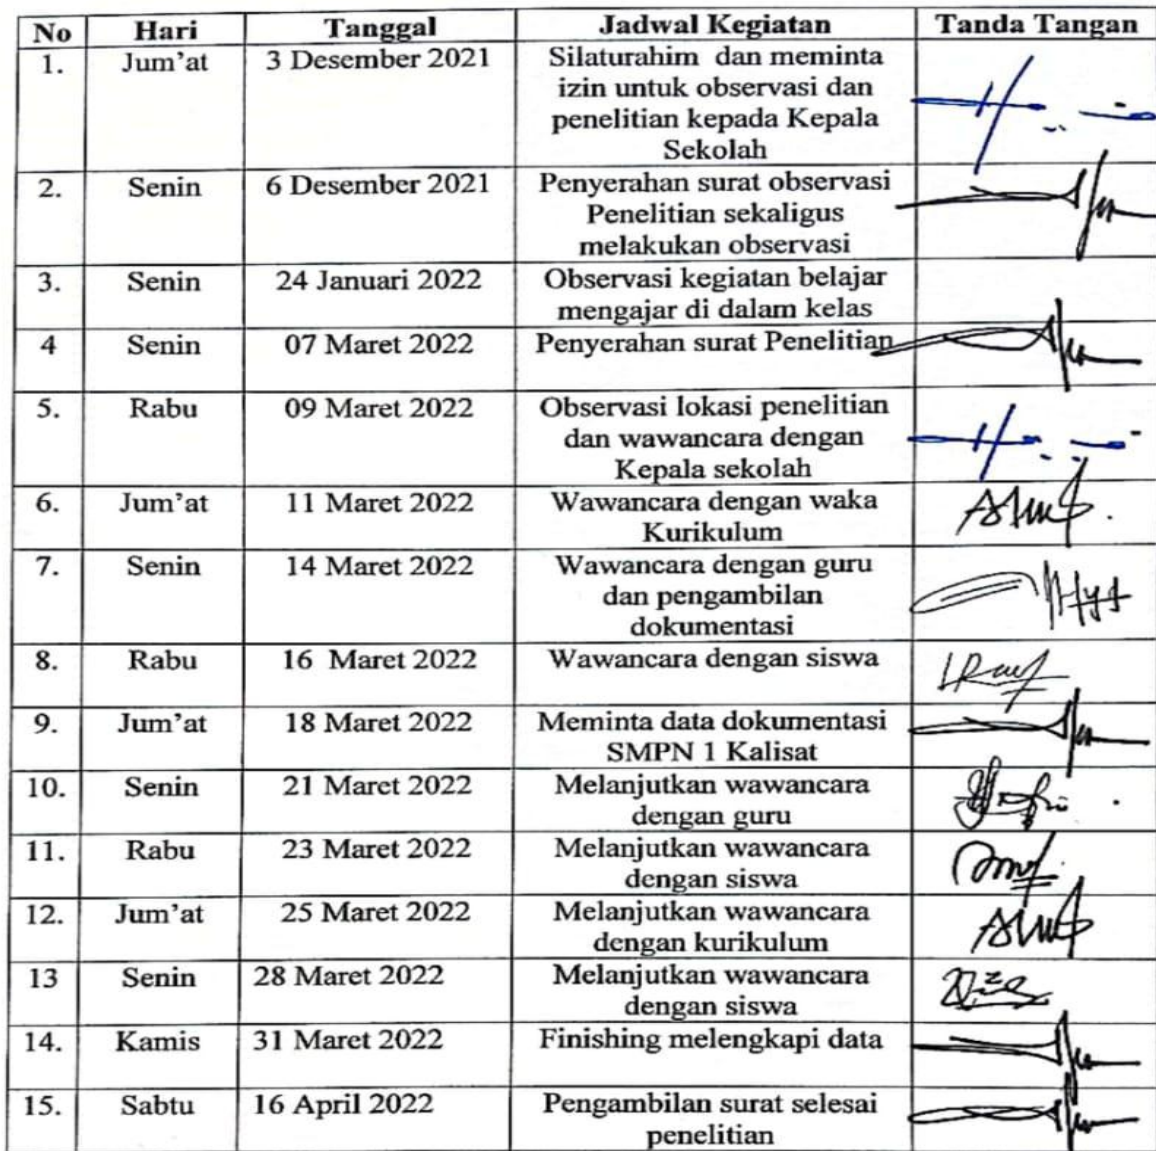 No Hari Tanggal Jadwal Kegiatan Tanda Tangan
1. Jum'at 3 Desember 2021 Silaturahim dan meminta
izin untuk observasi dan
penelitian kepada Kepala
Sekolah
2. Senin 6 Desember 2021 Penyerahan surat observasi
Penelitian sekaligus
melakukan observasi
3. Senin 24 Januari 2022 Observasi kegiatan belajar
mengajar di dalam kelas
4 Senin 07 Maret 2022 Penyerahan surat Penelitian
5. Rabu 09 Maret 2022 Observasi lokasi penelitian
dan wawancara dengan
Kepala sekolah
6. Jum'at 11 Maret 2022 Wawancara dengan waka
Kurikulum
7. Senin 14 Maret 2022 Wawancara dengan guru
dan pengambilan
dokumentasi
8. Rabu 16 Maret 2022 Wawancara dengan siswa
9. Jum'at 18 Maret 2022 Meminta data dokumentasi
SMPN 1 Kalisat
10. Senin 21 Maret 2022 Melanjutkan wawancara
dengan guru
11. Rabu 23 Maret 2022 Melanjutkan wawancara
dengan siswa
12. Jum'at 25 Maret 2022 Melanjutkan wawancara
dengan kurikulum
13 Senin 28 Maret 2022 Melanjutkan wawancara
dengan siswa
14. Kamis 31 Maret 2022 Finishing melengkapi data
15. Sabtu 16 April 2022 Pengambilan surat selesai
penelitian